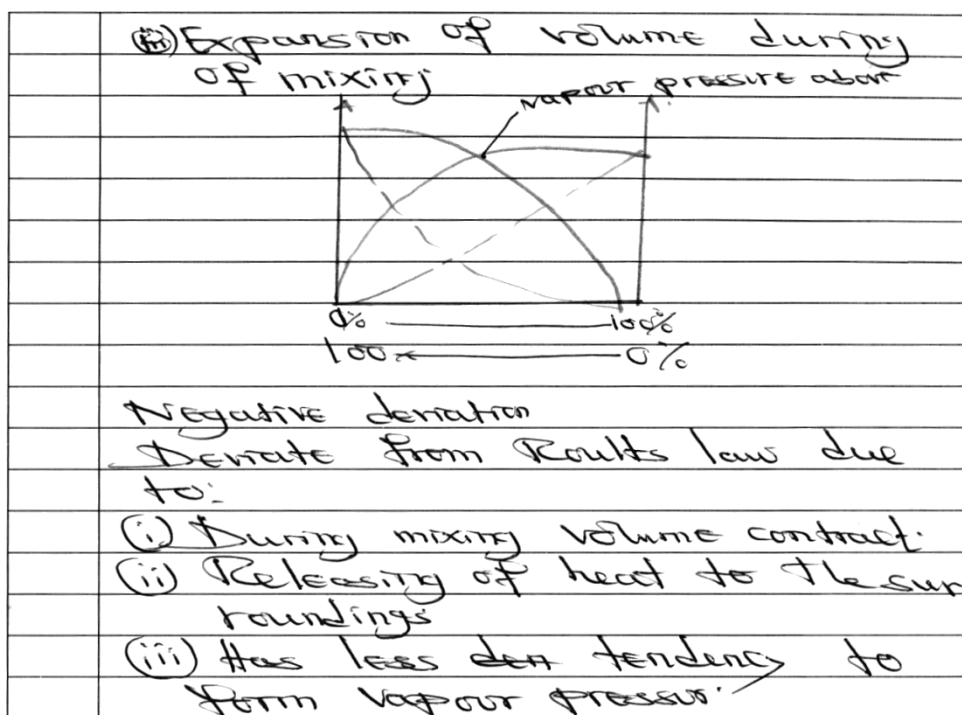 (iii) Expansion of volume during
of mixing
vapour pressure above
0% 100%
100 0%
Negative deviation
Deviate from Roults law due
to:
(i) During mixing volume contract.
(ii) Releasing of heat to the sur
roundings
(iii) Has less tendency to
form vapour pressur.